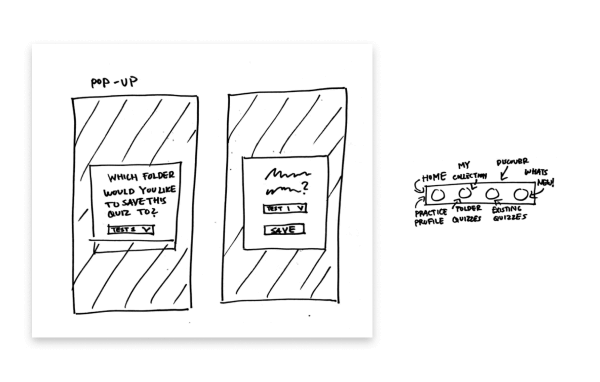 POP-UP
WHICH FOLDER
WOULD YOU LIKE
TO SAVE THIS
QUIZ TO?
TEST 1 V
SAVE
HOME
MY
COLLECTION
DISCOVER
WHATS
NEW!
PRACTICE
PROFILE
FOLDER
QUIZZES
EXISTING
QUIZZES